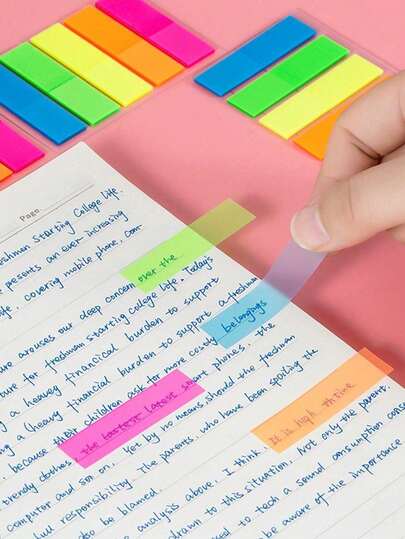 Page
Freshman Starting College Life.
presents an ever increasing
life. covering mobile phone, com
over the
are arouses our deep concern
starting college life. Today's
ture for freshman
ing a heaveg financical burden to support a freshman
belongings
a (heavy financial burden to support
because their children ask to more costly
phones. the
the lastest latest
trendy clothes
computer and so on. Yet by no means should the freshman
It is high thrine
full responsibility. The parents, who have been spoiling the
to be blamed.
analysis above, I think,
drawn to this situation. Not only the parent.
to tech a sound consumption conse
be aware of the importance